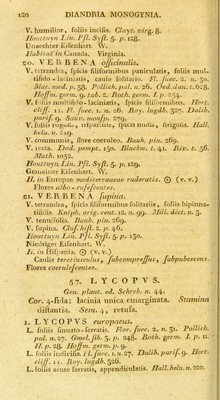 120 DIANDRIA MONOGYNIA.
V. humilior, foliis incisis. Clayt. virg. 8.
Houttuyn Lin. Pfl. Syst. 5. p. 128.
Unaechter Eisenhart. W.
Habitat in Canada. Virginia.
20. VERBENA officinalis.
V. tetrandra, spicis filiformibus paniculatis, foliis mul-
tifido-laciniatis, caule solitario. Fl. suec. 2. n. 30.
Mat. med. p. 38. Pollich. pal. n. 26. Oed. dan. t. 628.
Hoffm. germ. 9. tab. 2. Roth. germ. I. p. 254.
V. foliis multifido-laciniatis, spicis filiformibus. Hort.
cliff. 11. Fl. suec. 1. n. 26. Roy. lugdb. 327. Dalib.
paris. 9. Sauv. monsp. 279.
V. foliis rugosis, tripartitis, spicis nudis, strigosis. Hall.
helv. n. 219.
V. communis, flore coeruleo. Bauh. pin. 269.
V. recta. Dod. pempt. 150. Blackw. t. 41. Div. t. 56.
Math. 1052.
Houttuyn Lin. Pfl. Syst. 5. p. 129.
Gemeiner Eisenhart. W.
H. in Europae mediterraneae ruderatis. ☉ (v. v.)
Flores albo-rufescentes.
21. VERBENA supina.
V. tetrandra, spicis filiformibus solitariis, foliis bipinna-
tifidis. Kniph. orig. cent. 12. n. 99. Mill. dict. n. 3.
V. tenuifolia. Bauh. pin. 269.
V. supina. Clus. hist. 2. p. 46.
Houttuyn Lin. Pfl. Syst. 5. p. 130.
Niedriger Eisenhart. W.
H. in Hispania. ☉ (v. v.)
Caulis teretiusculus, subcompressus, subpubescens.
Flores coerulescentes.
57. LYCOPVS.
Gen. plant. ed. Schreb. n. 44.
Cor. 4-fida: lacinia unica emarginata. Stamina
distantia. Sem. 4, retusa.
1. LYCOPVS europaeus.
L. foliis sinuato-serratis. Flor. suec. 2. n. 31. Pollich.
pal. n. 27. Gmel. sib. 3. p. 248. Roth. germ. I. p. 11.
II. p. 28. Hoffm. germ. p. 9.
L. foliis indivisis. Fl. suec. 1. n. 27. Dalib. paris. 9. Hort.
cliff. 11. Roy. lugdb. 326.
L. foliis acute serratis, appendiculatis. Hall. helv. n. 220.